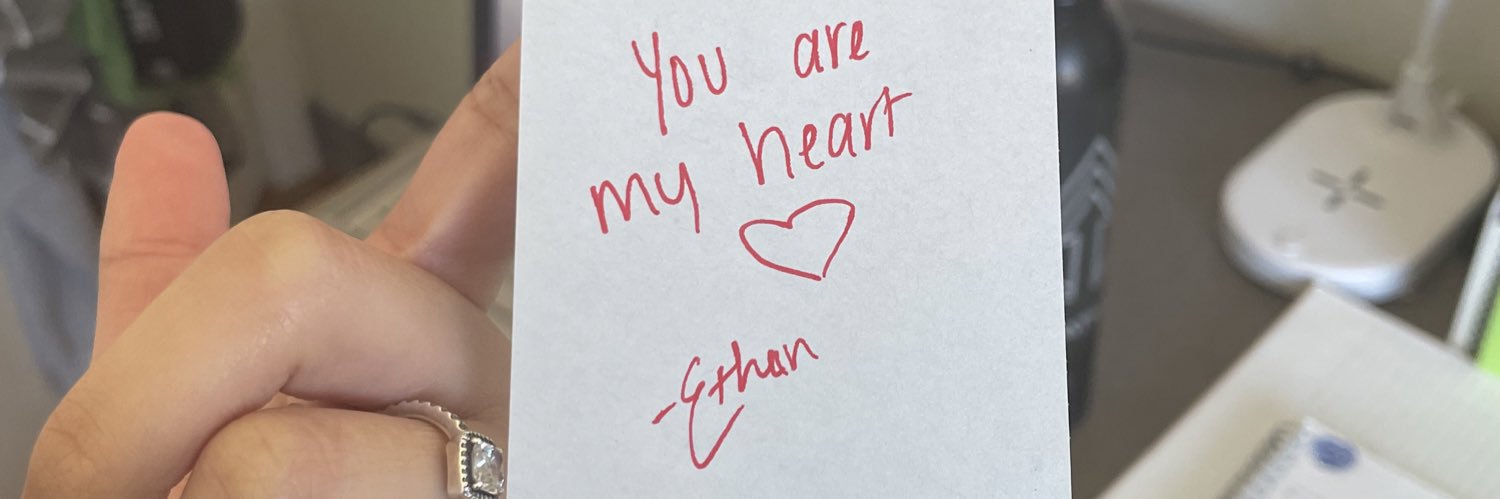 You are
my heart
-Ethan